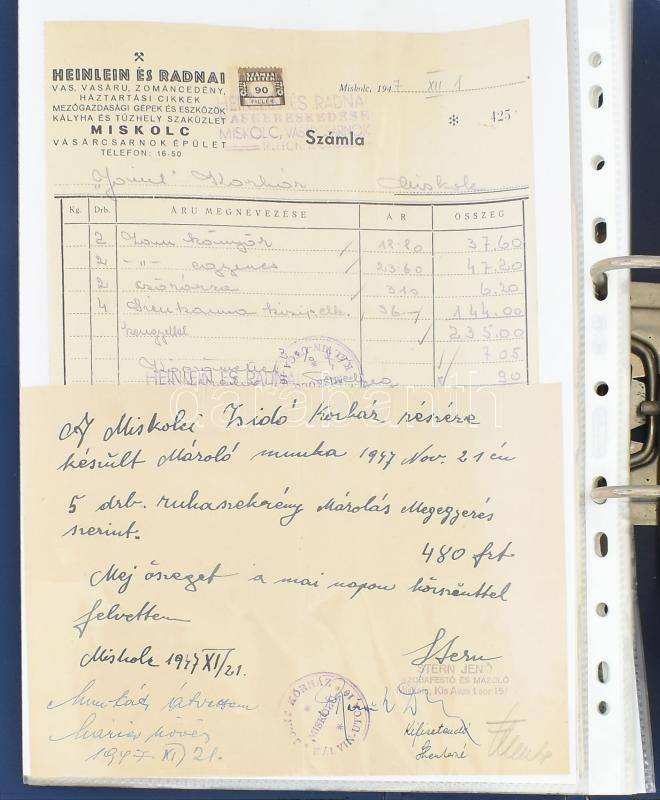 HEINLEIN ÉS RADNAI
VAS, VASÁRU, ZOMÁNCEDÉNY,
HÁZTARTÁSI CIKKEK
MEZŐGAZDASÁGI GÉPEK ÉS ESZKÖZÖK
KÁLYHA ÉS TŰZHELY SZAKÜZLET
MISKOLC
VÁSÁRCSARNOK ÉPÜLET
TELEFON: 16-50
90
FILLÉR
HEINLEIN ÉS RADNAI
VASKERESKEDÉSE
MISKOLC, VÁSÁRCSARNOK
Miskolc, 1947 XII 1
* 425
Számla
"Joint" Korház Miskolc
Kg. Drb. ÁRU MEGNEVEZÉSE ÁR ÖSSZEG
2 könyök 18.80 37.60
2 -"- egyenes 23.60 47.20
2 3.10 6.20
4 36.- 144.00
235.00
7 05
90
HEINLEIN ÉS RADNAI
darabanth
A Miskolci Zsidó Korház részére
készült Mároló munka 1947 Nov. 21én
5 drb. ruhaszekrény Márolás Megegyezés
szerint.
480 frt
Mej öszeget a mai napon köszönettel
felvettem
Miskolc 1947 XI/21.
Stern
STERN JENŐ
SZOBAFESTŐ ÉS MÁZOLÓ
Miskolc, Kis Avas I sor 15
Munkát átvettem
1947. XI/21.
JOINT KÓRHÁZ
MISKOLC
KÁLVIN-UTCA 16
Kifizetendő